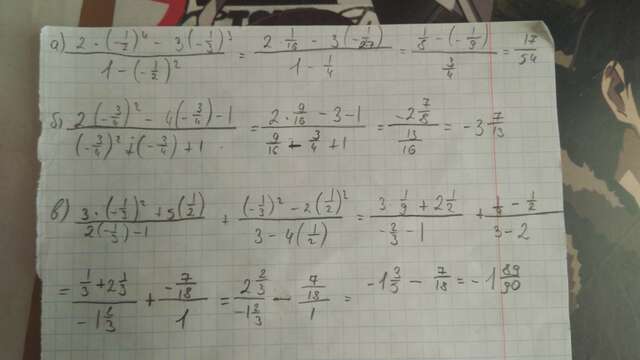 а) (2·(-1/2)⁴ - 3(-1/3)³)/(1-(-1/2)²) = (2 1/16 - 3(-1/27))/(1 - 1/4) = (1/8 - (-1/9))/(3/4) = 17/54
б) (2(-3/4)² - 4(-3/4) - 1)/((-3/4)² + (-3/4) + 1) = (2·9/16 - 3 - 1)/(9/16 - 3/4 + 1) = (-2 7/8)/(13/16) = -3 7/13
в) (3·(-1/3)² + 5(1/2))/(2(-1/3) - 1) + ((-1/3)² - 2(1/2)²)/(3 - 4(1/2)) = (3 1/9 + 2 1/2)/(-2/3 - 1) + (1/9 - 1/2)/(3 - 2)
= (1/3 + 2 1/3)/(-1 2/3) + (-7/18)/1 = (2 2/3)/(-1 2/3) - (7/18)/1 = -1 3/5 - 7/18 = -1 89/90